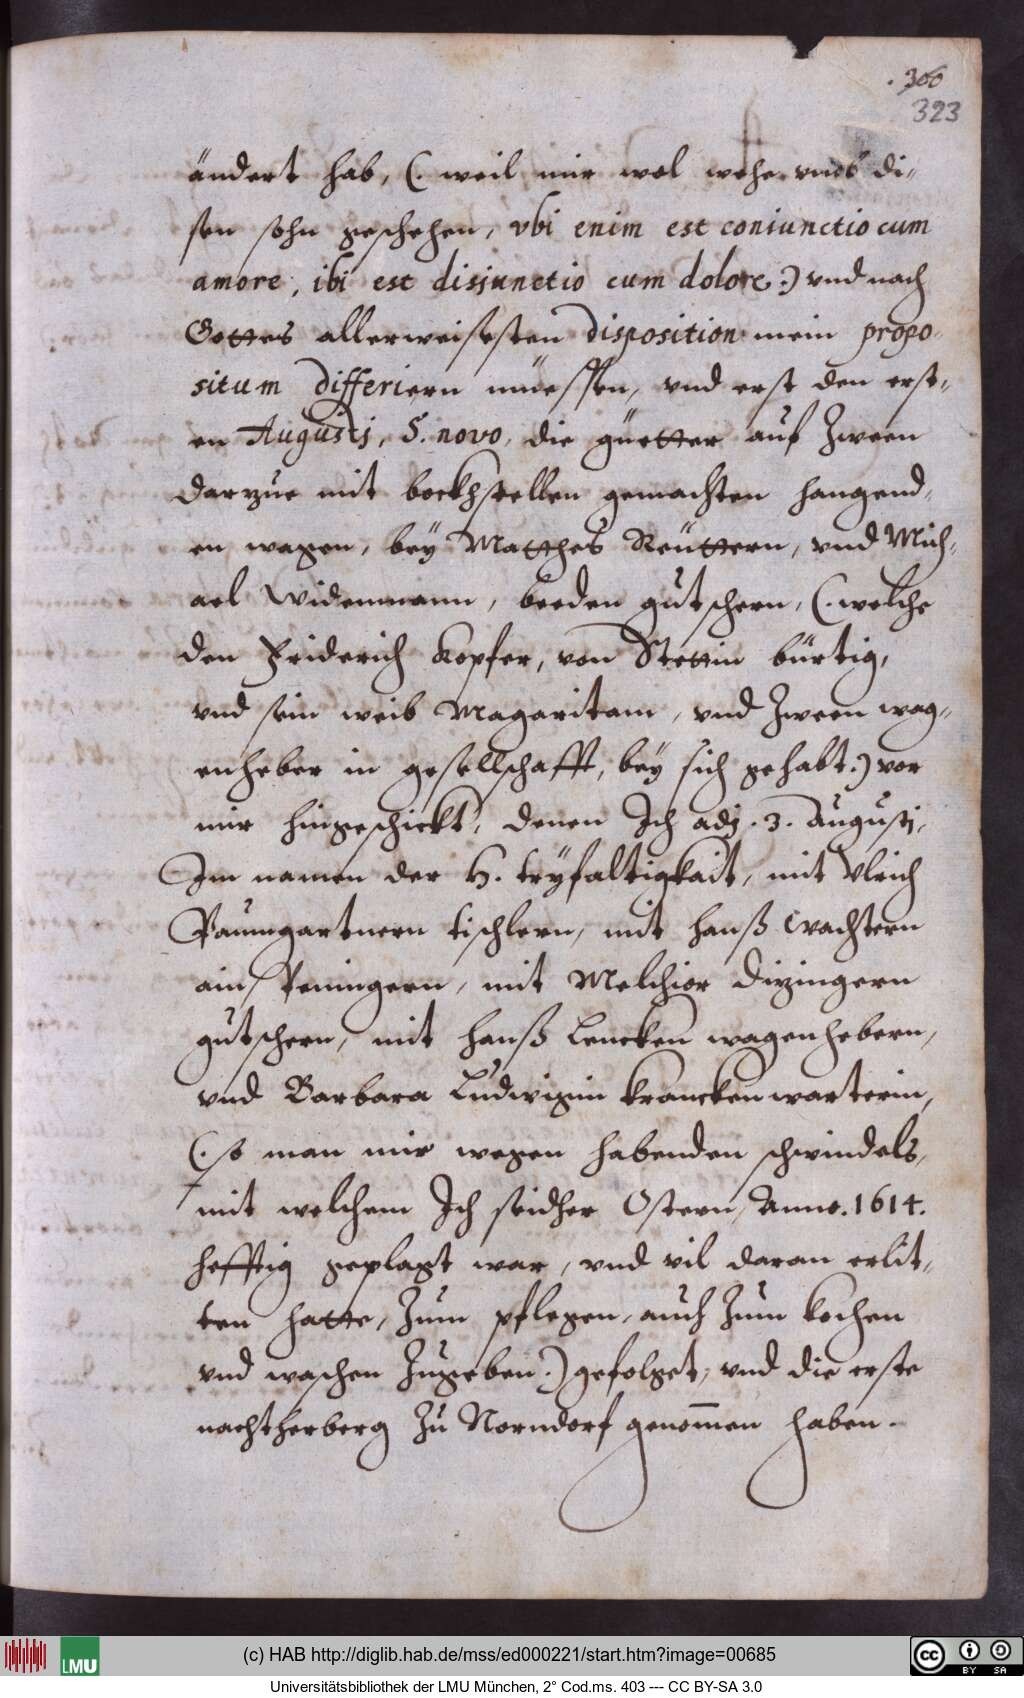 . 300
323
ändert hab, (. weil mir wol wehe vmb di-
sen sohn geschehen, vbi enim est coniunctio cum
amore, ibi est disjunctio cum dolore:) vnd nach
Gottes allerweisesten disposition mein propo-
situm differiern müessen, vnd erst den erst-
en Augusti, S. novo, die güetter auf zween
darzue mit bockhstellen gemachten hangend-
en wagen, bey Matthes Reüttern, vnd Mich-
ael Widenmann, beeden gutschern, (. welche
den Friderich Kopfer, von Stettin bürtig,
vnd sein weib Magaritam, vnd zween wag-
enheber in gesellschafft, bey sich gehabt:) vor
mir hingeschickt, denen Ich adj. 3. Augustj,
Im namen der H. tryfaltigkait, mit Vlrich
Paumgartnern tischlern, mit Hanß Wachtern
ain, mit Melchior Dizingern
gutschern, mit Hanß Lencken wagenhebern,
vnd Barbara Ludwigin kranckenwarterin,
(. so man mir wegen habenden schwindels,
mit welchem Ich seidher Ostern, Anno. 1614.
hefftig geplagt war, vnd vil daran erlit-
ten hatte, zum pflegen, auch zum kochen
vnd waschen zugeben.) gefolget, vnd die erste
nachtherberg zu Norndorf genom̄en haben.
LMU
(c) HAB http://diglib.hab.de/mss/ed000221/start.htm?image=00685
cc BY SA
Universitätsbibliothek der LMU München, 2° Cod.ms. 403 --- CC BY-SA 3.0